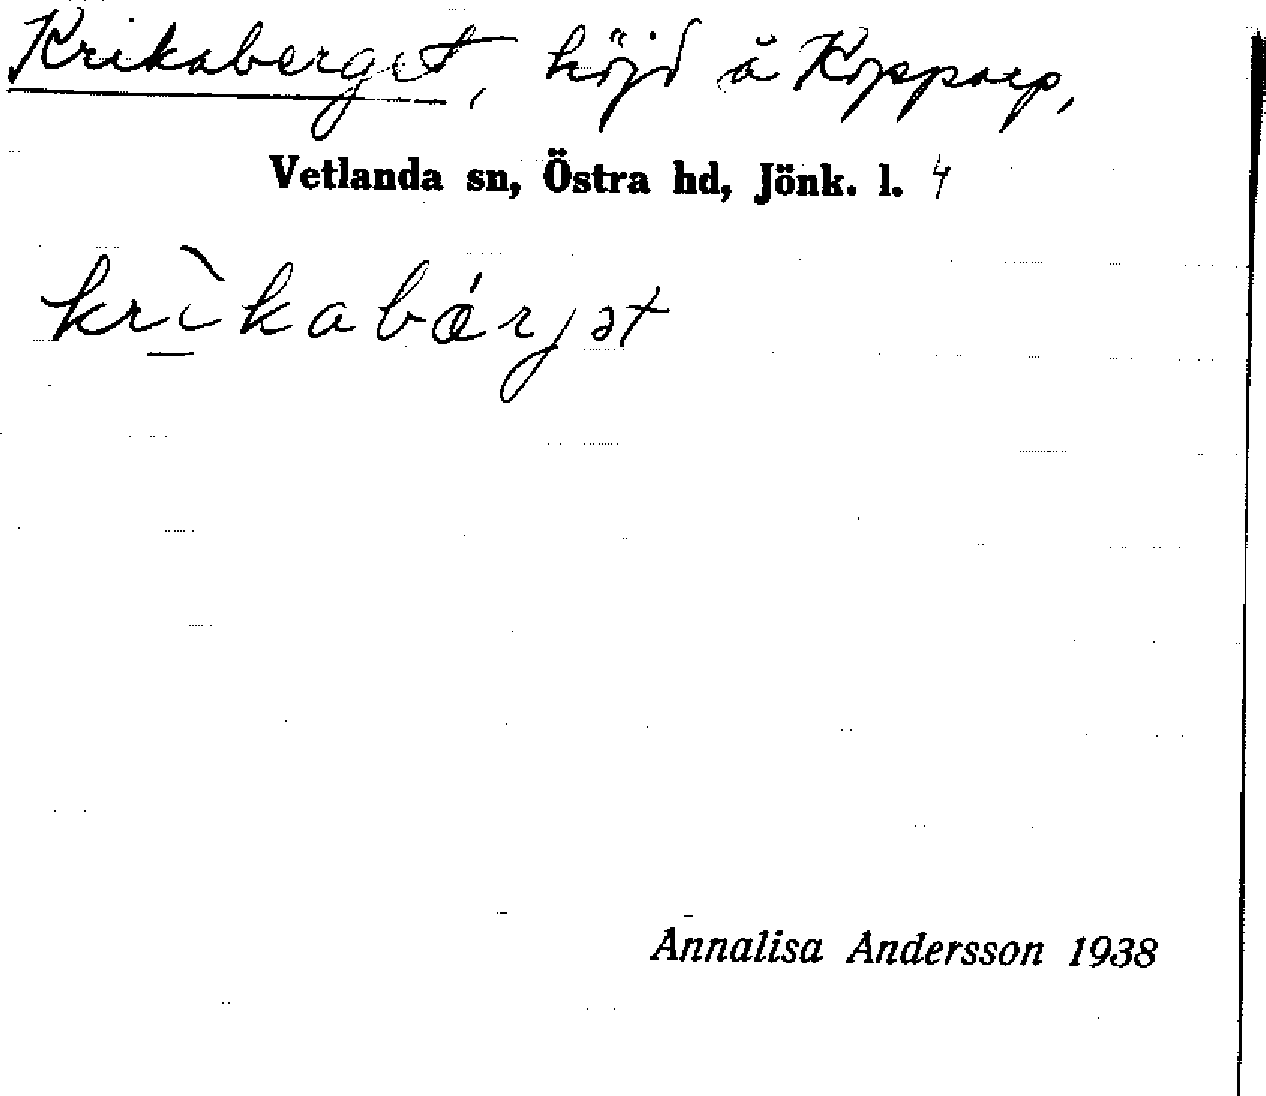 Krikaberget, höjd å Kopparp,
Vetlanda sn, Östra hd, Jönk. l. 4
krìkabǽrjət
Annalisa Andersson 1938